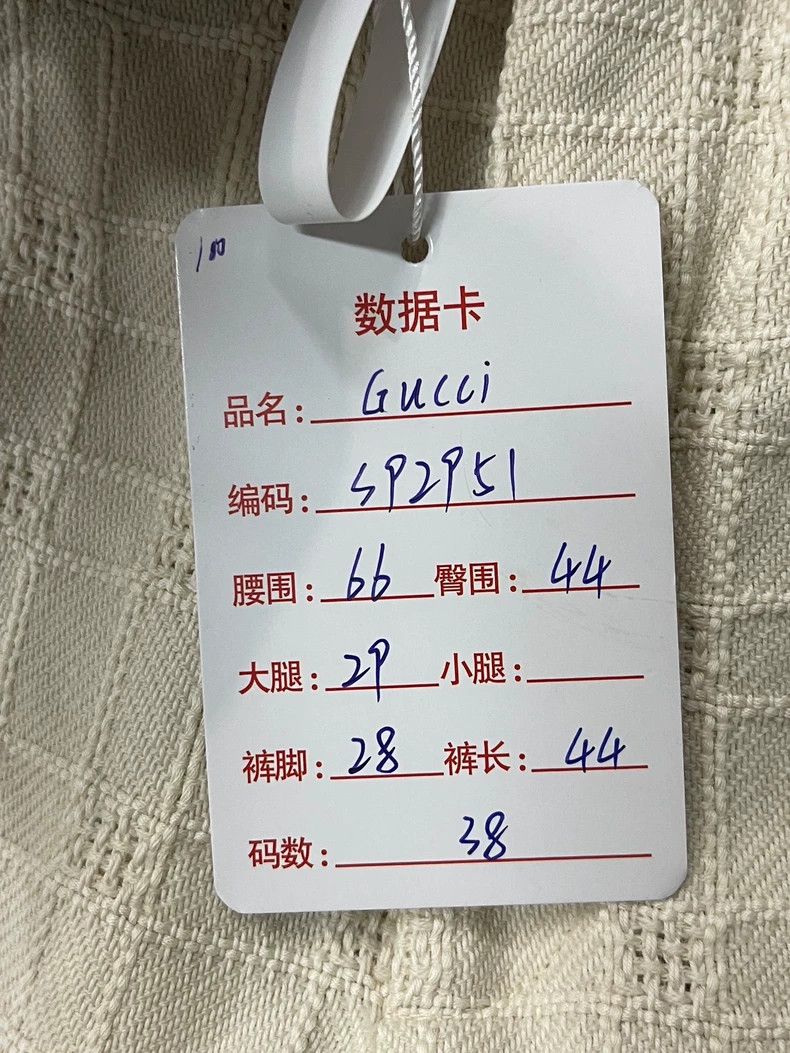 180
数据卡
品名: Gucci
编码: S92951
腰围: 66 臀围: 44
大腿: 29 小腿:
裤脚: 28 裤长: 44
码数: 38